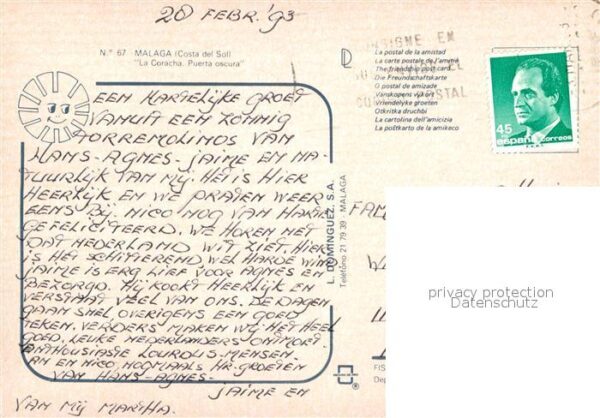 20 FEBR. '93
N.° 67 MALAGA (Costa del Sol)
"La Coracha. Puerta oscura"
CONSIGNE EN
EL
POSTAL
La postal de la amistad
La carte postale de l'amitié
The friendship post card
Die Freundschaftskarte
O postal de amizade
Vänskapens vykort
Vriendelyke groeten
Otkritka druchbi
La cartolina dell'amicizia
La poŝtkarto de la amikeco
45
españa correos
EEN HARTELIJKE GROET
VANUIT EEN ZONNIG
TORREMOLINOS VAN
HANS-AGNES-JAIME EN NA-
TUURLIJK VAN MIJ. HET IS HIER
HEERLIJK EN WE PRATEN WEER
EENS BIJ. NICO NOG VAN HARTE
GEFELICITEERD. WE HOREN NET
DAT NEDERLAND WIT ZIET. HIER
IS HET SCHITTEREND WEL HARDE WIND
JAIME IS ERG LIEF VOOR AGNES EN
BEZORGD. HIJ KOOKT HEERLIJK EN
VERSTAAT VEEL VAN ONS. DE DAGEN
GAAN SNEL OVERIGENS EEN GOED
TEKEN. VERDERS MAKEN WIJ HET HEEL
GOED. LEUKE NEDERLANDERS ONTMOET
ENTHOUSIASTE LOURDUS-MENSEN.
EN NICO, NOGMAALS HR. GROETEN
VAN HANS-AGNES-
JAIME EN
VAN MIJ MARTHA.
L. DOMINGUEZ, S.A.
Teléfono 21 79 39 - MALAGA
FAM
FIS
Dep
privacy protection
Datenschutz